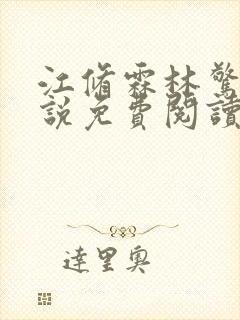 江脩霖林驚
說免費閱讀
達里奧